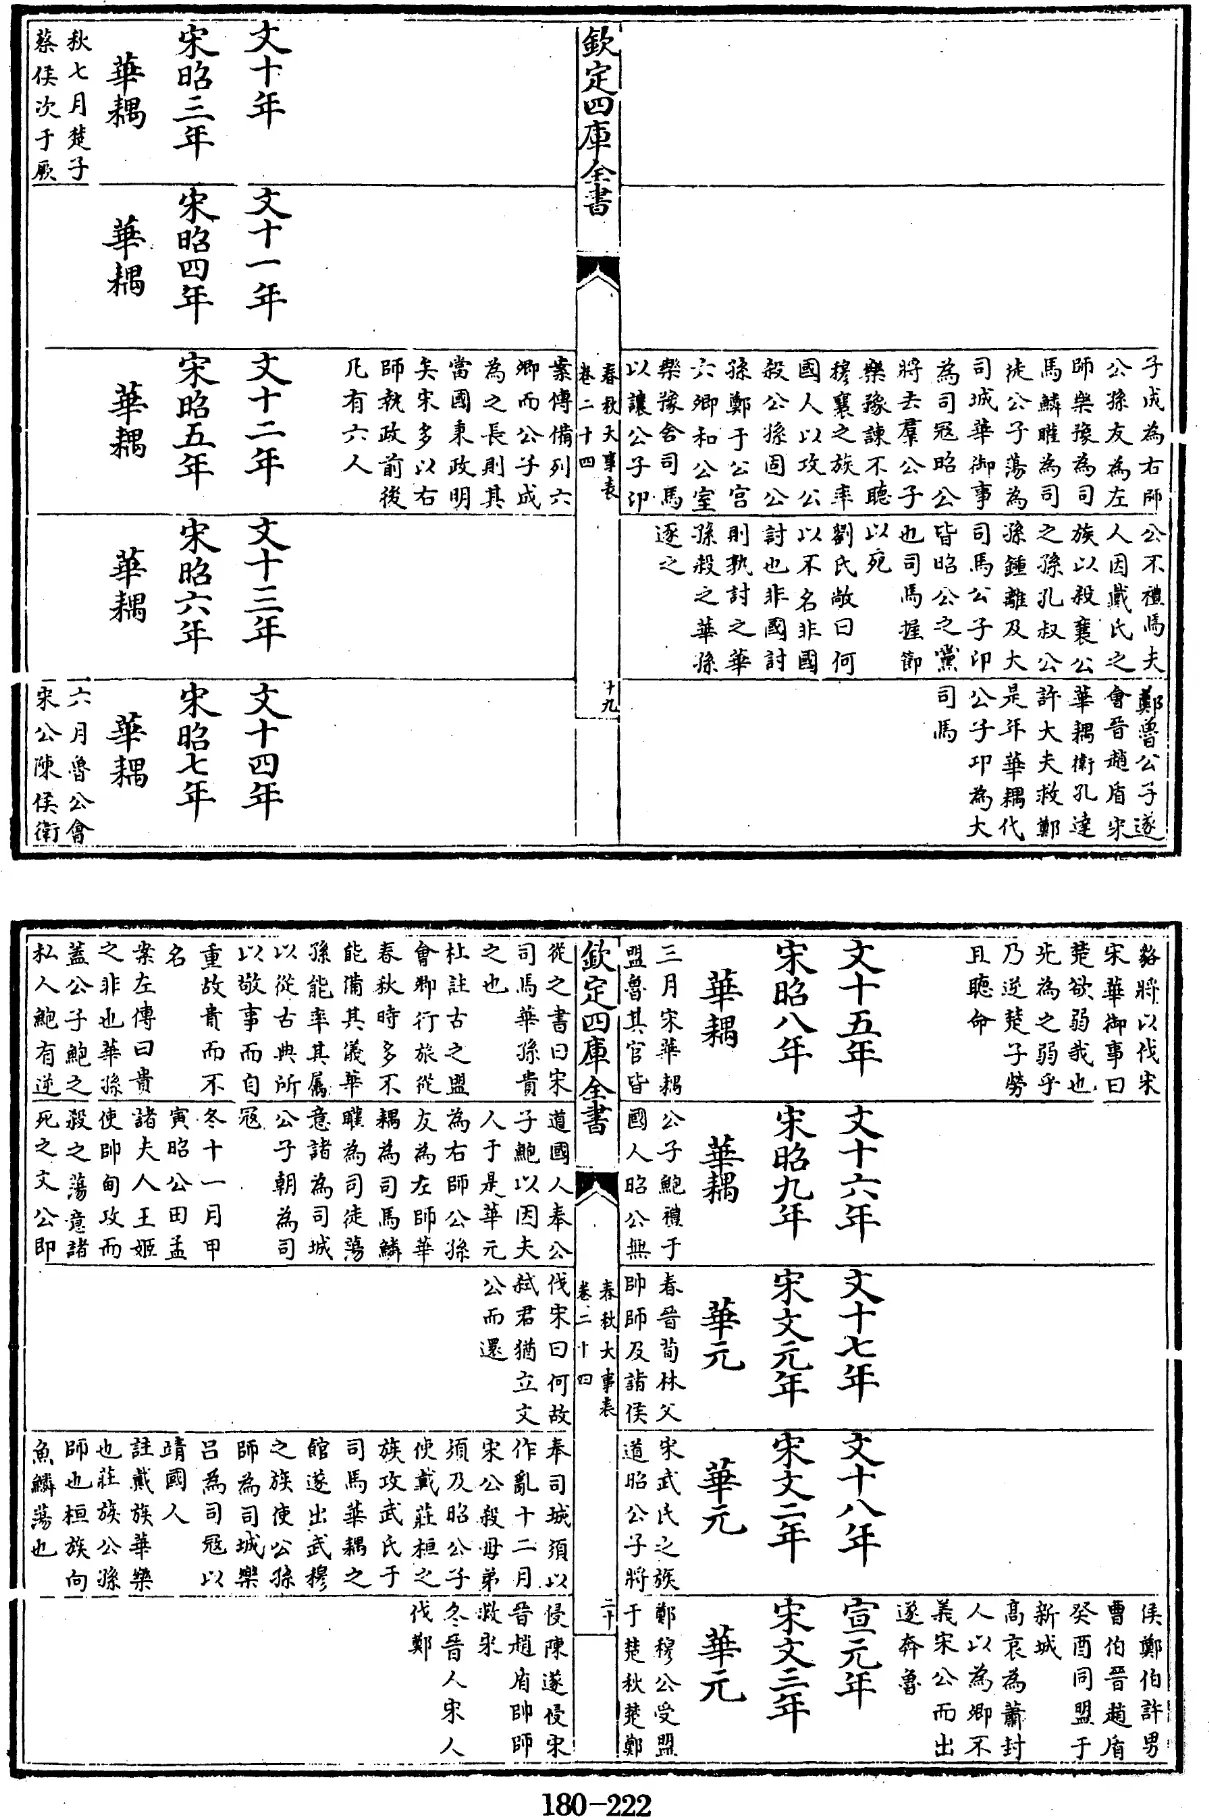 子成為右師
公孫友為左
師樂豫為司
馬鱗矔為司
徒公子蕩為
司城華御事
為司冦昭公
將去羣公子
樂豫諫不聽
穆襄之族率
國人以攻公
殺公孫固公
孫鄭于公宫
六卿和公室
樂豫舍司馬
以讓公子卬
公不禮焉夫
人因戴氏之
族以殺襄公
之孫孔叔公
孫鍾離及大
司馬公子卬
皆昭公之黨
也司馬握節
以死
劉氏敞曰何
以不名非國
討也非國討
則孰討之華
孫殺之華孫
逐之
鄭魯公子遂
會晉趙盾宋
華耦衛孔達
許大夫救鄭
是年華耦代
公子卬為大
司馬
欽定四庫全書
春秋大事表
卷二十四
十九
文十年
宋昭三年
華耦
秋七月楚子
蔡侯次于厥
文十一年
宋昭四年
華耦
案傳備列六
卿而公子成
為之長則其
當國秉政明
矣宋多以右
師執政前後
凡有六人
文十二年
宋昭五年
華耦
文十三年
宋昭六年
華耦
文十四年
宋昭七年
華耦
六月魯公會
宋公陳侯衛
貉將以伐宋
宋華御事曰
楚欲弱我也
先為之弱乎
乃逆楚子勞
且聽命
文十五年
宋昭八年
華耦
三月宋華耦
盟魯其官皆
文十六年
宋昭九年
華耦
公子鮑禮于
國人昭公無
文十七年
宋文元年
華元
春晉荀林父
帥師及諸侯
文十八年
宋文二年
華元
宋武氏之族
道昭公子將
侯鄭伯許男
曹伯晉趙盾
癸酉同盟于
新城
高哀為蕭封
人以為卿不
義宋公而出
遂奔魯
宣元年
宋文三年
華元
鄭穆公受盟
于楚秋楚鄭
欽定四庫全書
春秋大事表
卷二十四
二十
從之書曰宋
司馬華孫貴
之也
杜註古之盟
會卿行旅從
春秋時多不
能備其儀華
孫能率其屬
以從古典所
以敬事而自
重故貴而不
名
案左傳曰貴
之非也華孫
蓋公子鮑之
私人鮑有逆
道國人奉公
子鮑以因夫
人于是華元
為右師公孫
友為左師華
耦為司馬鱗
矔為司徒蕩
意諸為司城
公子朝為司
冦
冬十一月甲
寅昭公田孟
諸夫人王姬
使帥甸攻而
殺之蕩意諸
死之文公即
伐宋曰何故
弑君猶立文
公而還
奉司城須以
作亂十二月
宋公殺母弟
須及昭公子
使戴莊桓之
族攻武氏于
司馬華耦之
館遂出武穆
之族使公孫
師為司城樂
呂為司冦以
靖國人
註戴族華樂
也莊族公孫
師也桓族向
魚鱗蕩也
侵陳遂侵宋
晉趙盾帥師
救宋
冬晉人宋人
伐鄭
180-222